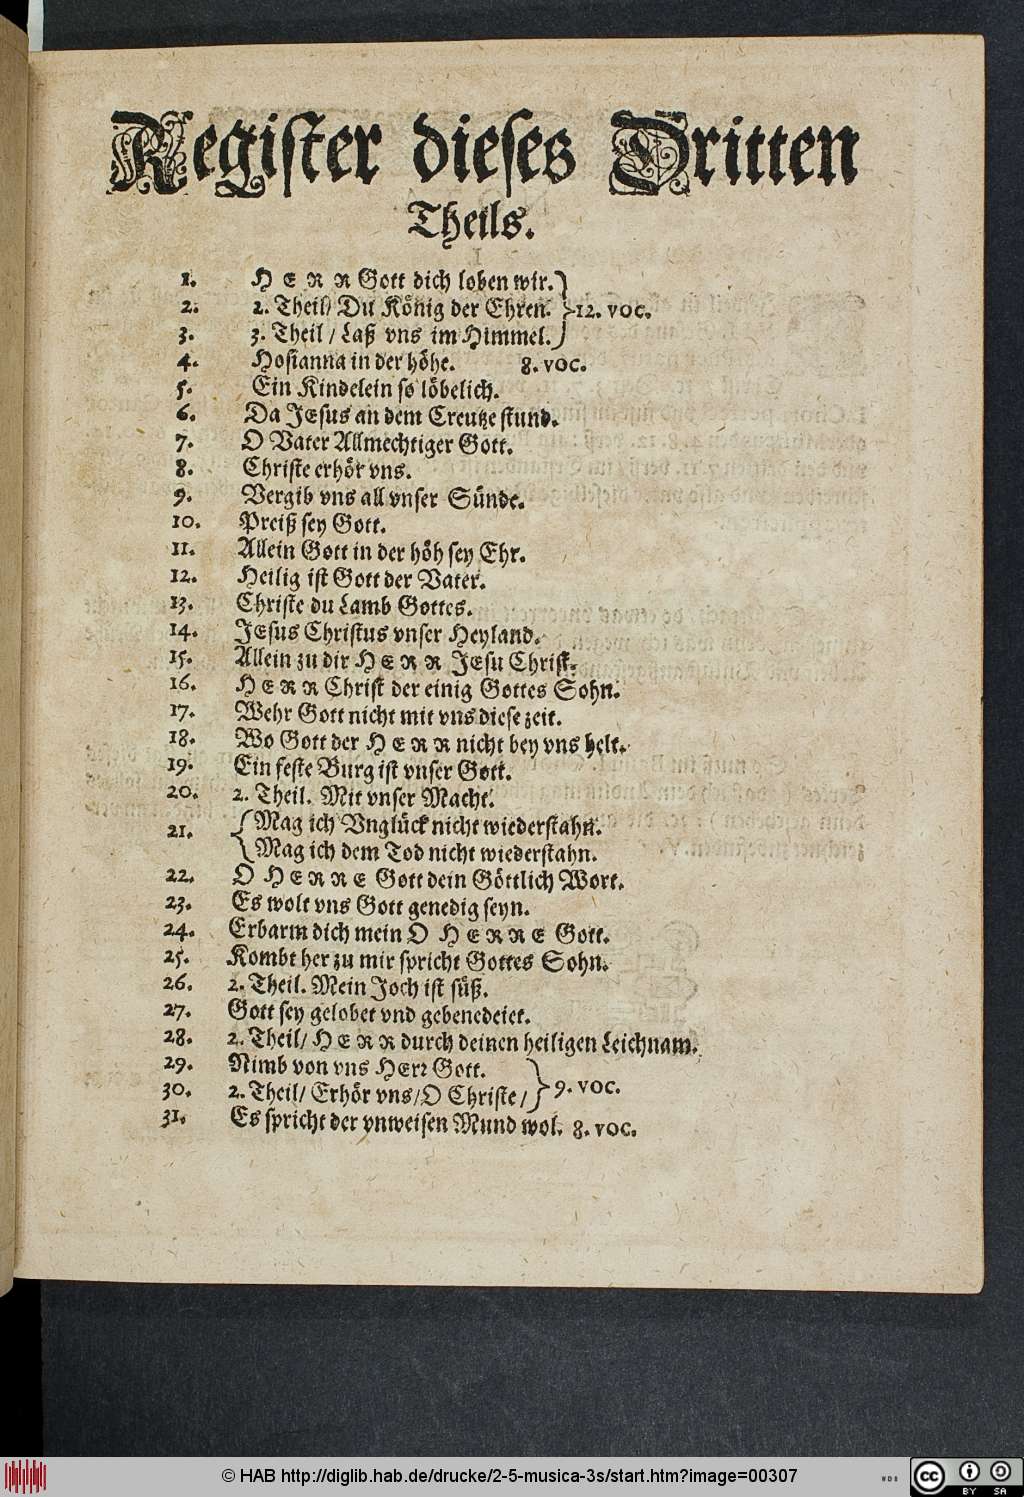 Register dieses Dritten
Theils.
1. HERR Gott dich loben wir.
2. 2. Theil/ Du König der Ehren. 12. voc.
3. 3. Theil / Laß vns im Himmel.
4. Hosianna in der höhe. 8. voc.
5. Ein Kindelein so löbelich.
6. Da JEsus an dem Creutze stund.
7. O Vater Allmechtiger Gott.
8. Christe erhör vns.
9. Vergib vns all vnser Sünde.
10. Preiß sey Gott.
11. Allein Gott in der höh sey Ehr.
12. Heilig ist Gott der Vater.
13. Christe du Lamb Gottes.
14. JEsus Christus vnser Heyland.
15. Allein zu dir HERR JEsu Christ.
16. HERR Christ der einig Gottes Sohn.
17. Wehr Gott nicht mit vns diese zeit.
18. Wo Gott der HERR nicht bey vns helt.
19. Ein feste Burg ist vnser Gott.
20. 2. Theil. Mit vnser Macht.
21. Mag ich Vnglück nicht wiederstahn.
Mag ich dem Tod nicht wiederstahn.
22. O HERRE Gott dein Göttlich Wort.
23. Es wolt vns Gott genedig seyn.
24. Erbarm dich mein O HERRE Gott.
25. Kombt her zu mir spricht Gottes Sohn.
26. 2. Theil. Mein Joch ist süß.
27. Gott sey gelobet vnd gebenedeiet.
28. 2. Theil/ HERR durch deinen heiligen Leichnam.
29. Nimb von vns HErr Gott.
30. 2. Theil/ Erhör vns/ O Christe / 9. voc.
31. Es spricht der vnweisen Mund wol. 8. voc.
© HAB http://diglib.hab.de/drucke/2-5-musica-3s/start.htm?image=00307
cc BY SA